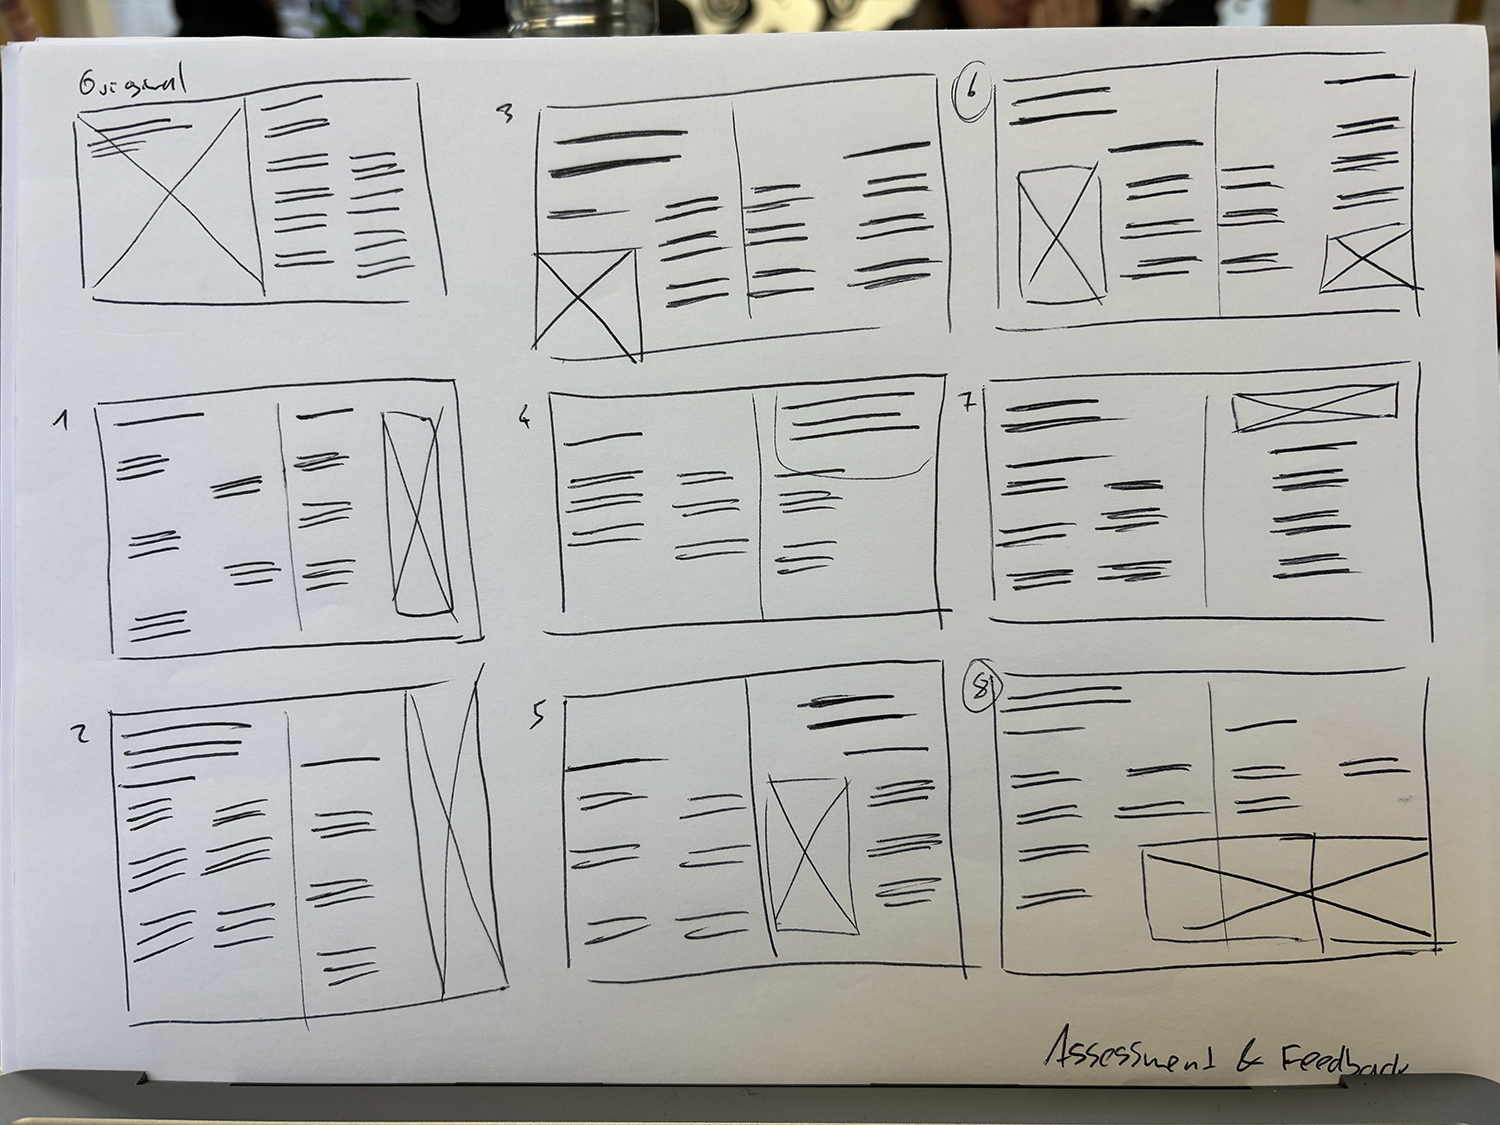 Original
3
6
1
4
7
2
5
8
Assessment & Feedback